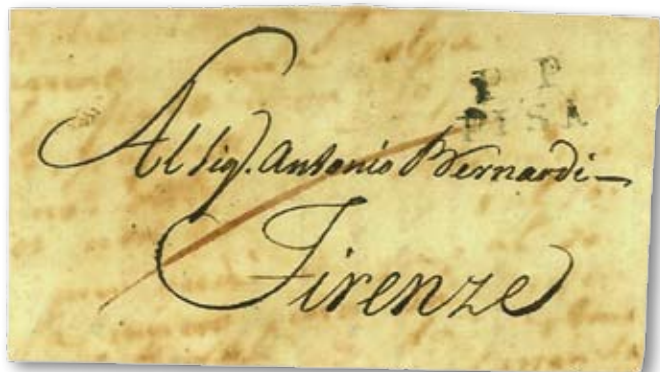 P P
PISA
Al Sig. Antonio Bernardi
Firenze